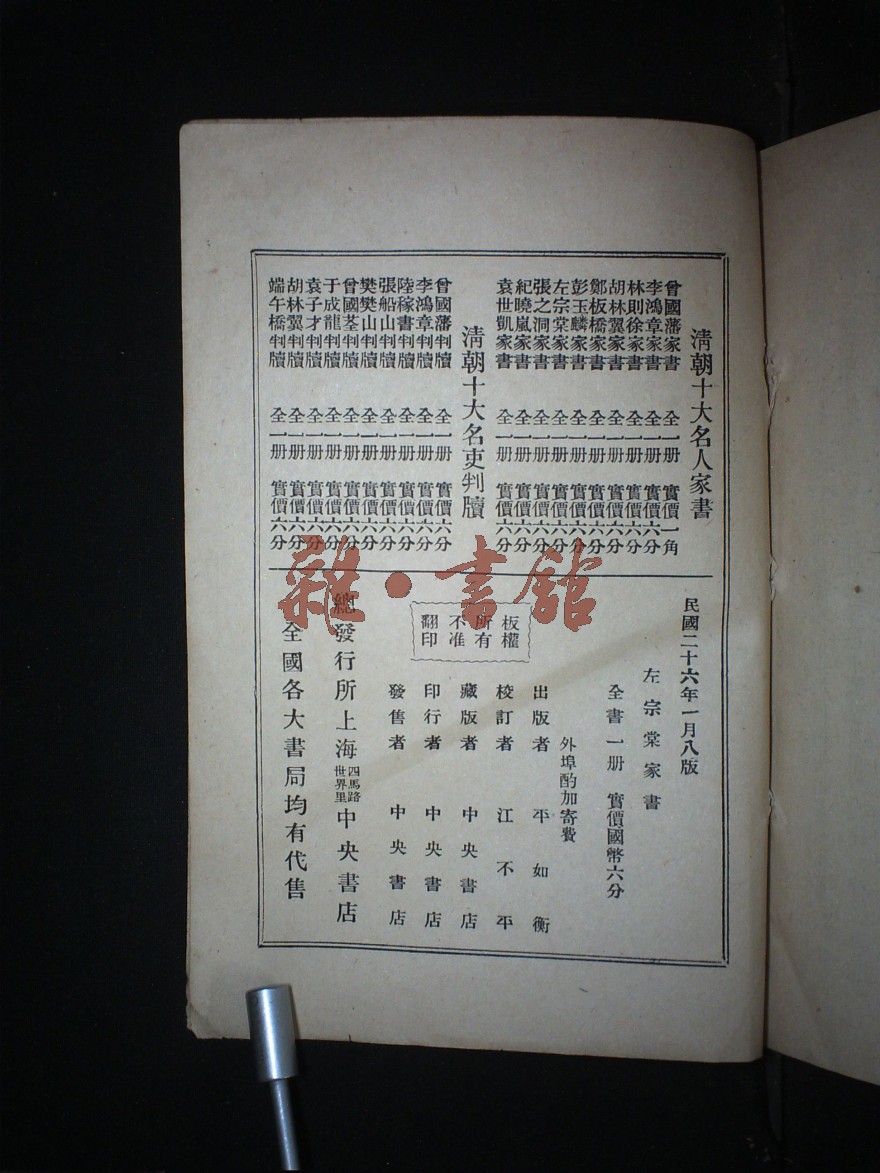 清朝十大名人家書
曾國藩家書 全一册 實價一角
李鴻章家書 全一册 實價六分
林則徐家書 全一册 實價六分
胡林翼家書 全一册 實價六分
鄭板橋家書 全一册 實價六分
彭玉麟家書 全一册 實價六分
左宗棠家書 全一册 實價六分
張之洞家書 全一册 實價六分
紀曉嵐家書 全一册 實價六分
袁世凱家書 全一册 實價六分
清朝十大名吏判牘
曾國藩判牘 全一册 實價六分
李鴻章判牘 全一册 實價六分
陸稼書判牘 全一册 實價六分
張船山判牘 全一册 實價六分
樊樊山判牘 全一册 實價六分
曾國荃判牘 全一册 實價六分
于成龍判牘 全一册 實價六分
袁子才判牘 全一册 實價六分
胡林翼判牘 全一册 實價六分
端午橋判牘 全一册 實價六分
民國二十六年一月八版
左宗棠家書
全書一册 實價國幣六分
外埠酌加寄費
出版者 平如衡
校訂者 江不平
藏版者 中央書店
印行者 中央書店
發售者 中央書店
板權
所有
不准
翻印
總發行所上海四馬路世界里中央書店
全國各大書局均有代售
雜·書館